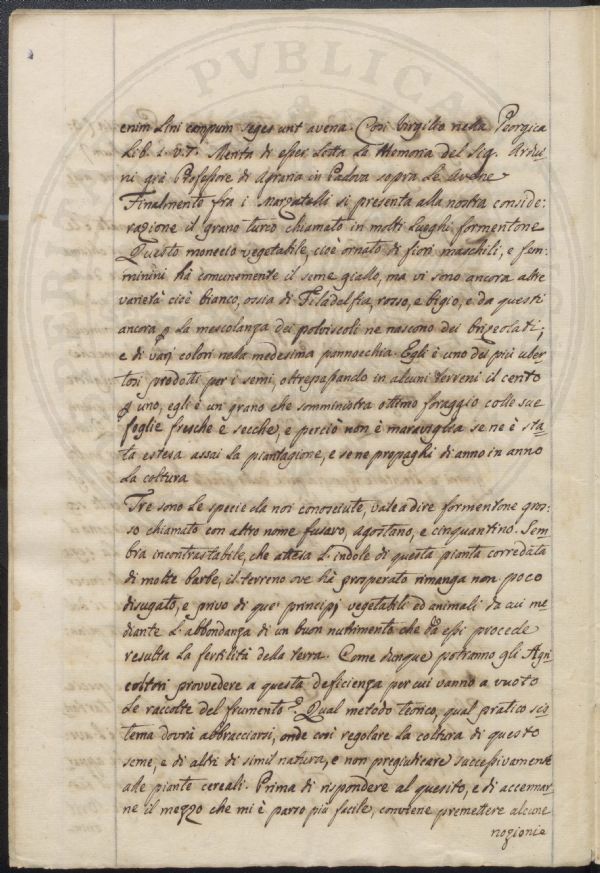 PVBLICA
enim Lini campum seges urit avena. Cosi Virgilio nella Georgica
Lib. 1. v. 7. Merita di esser letta la Memoria del Sig. Ardui-
ni già Professore di Agraria in Padova sopra le Avene
Finalmente fra i Marzatelli si presenta alla nostra conside:
razione il grano turco chiamato in molti Lueghi formentone
Questo monecio vegetabile, cioè ornato di fiori maschili, e fem-
minini hà comunemente il seme giallo, ma vi sono ancora altre
varietà cioè bianco, ossia di Filadelfia, rosso, e bigio, e da questi
ancora p la mescolanza dei polviscoli ne nascono dei brizzolati;
e di varj colori nella medesima pannocchia. Egli è uno dei più uber-
tosi prodotti per i semi, oltrepassando in alcuni terreni il cento
p uno, egli è un grano che somministra ottimo foraggio colle sue
foglie fresche e secche, e perciò non è maraviglia se ne è sta-
ta estesa assai la piantagione, e se ne propaghi di anno in anno
la coltura
Tre sono le specie da noi conosciute, vale a dire formentone gros-
so chiamato con altro nome fusaro, agostano, e cinquantino. Sem-
bra incontrastabile, che attesa l'indole di questa pianta corredata
di molte barbe, il terreno ove hà prosperato rimanga non poco
disugato, e privo di que' principj vegetabili ed animali da cui me-
diante l'abbondanza di un buon nutrimento che da essi procede
resulta la fertilità della terra. Come dunque potranno gli Agri
coltori provvedere a questa deficienza per cui vanno a vuoto
le raccolte del frumento? Qual metodo teorico, qual pratico sis-
tema dovrà abbracciarsi, onde così regolare la coltura di questo
seme, e di altri di simil natura, e non pregiudicare successivamente
alle piante cereali. Prima di rispondere al quesito, e di accennar-
ne il mezzo che mi è parso più facile, conviene premettere alcune
nozioni e